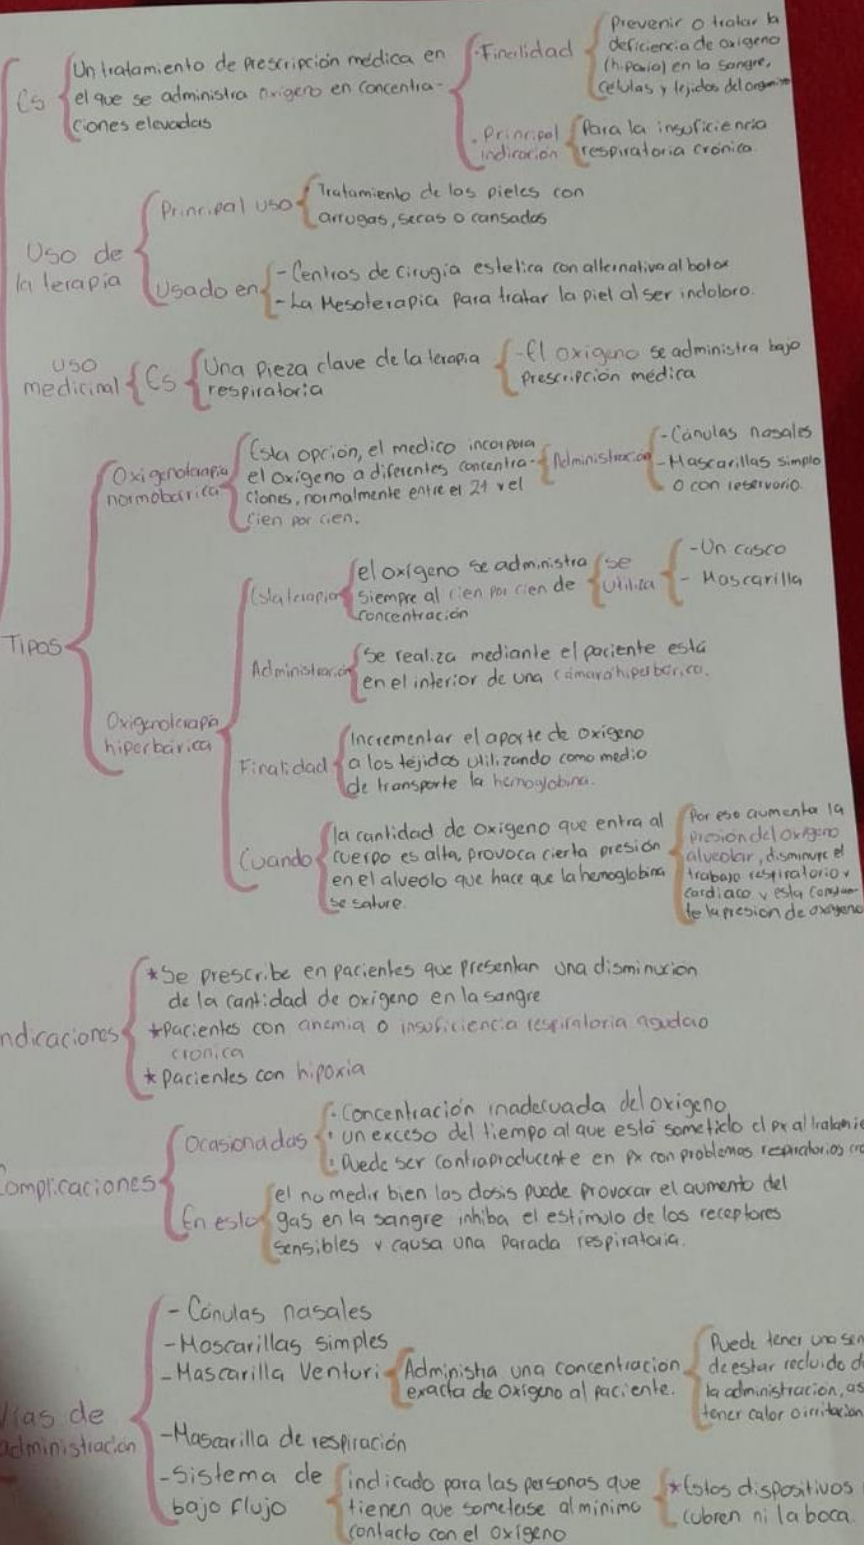 Es
Un tratamiento de prescripción médica en
el que se administra oxigeno en concentra-
ciones elevadas
·Finalidad
prevenir o tratar la
deficiencia de oxigeno
(hipoxia) en la sangre,
celulas y tejidos del organismo
·Principal
indicación
Para la insuficiencia
respiratoria crónica
Uso de
la terapia
Principal uso
Tratamiento de los pieles con
arrugas, secas o cansadas
Usado en
- Centros de cirugia estetica con alternativa al botox
- La Mesoterapia para tratar la piel al ser indoloro.
uso
medicinal
Es
Una pieza clave de la terapia
respiratoria
-El oxigeno se administra bajo
prescripción médica
Tipos
Oxigenoterapia
normobárica
Esta opción, el medico incorpora
el oxígeno a diferentes concentra-
ciones, normalmente entre el 21 y el
cien por cien.
Administración
-Cánulas nasales
-Mascarillas simples
o con reservorio.
Oxigenoterapia
hiperbárica
Esta terapia
el oxígeno se administra
siempre al cien por cien de
concentración
se
utiliza
-Un casco
- Mascarilla
Administración
Se realiza mediante el paciente está
en el interior de una cámara hiperbárica.
Finalidad
Incrementar el aporte de oxigeno
a los tejidos utilizando como medio
de transporte la hemoglobina.
Cuando
la cantidad de oxigeno que entra al
cuerpo es alta, provoca cierta presión
en el alveolo que hace que la hemoglobina
se sature.
Por eso aumenta la
presión del oxigeno
alveolar, disminuye el
trabajo respiratorio y
cardiaco y esta constan-
te la presion de oxigeno
ndicaciones
*Se prescribe en pacientes que presentan una disminucion
de la cantidad de oxigeno en la sangre
*pacientes con anemia o insuficiencia respiratoria aguda o
cronica
* pacientes con hipoxia
Complicaciones
Ocasionadas
· Concentración inadecuada del oxigeno
· un exceso del tiempo al que está sometido el px al tratamie
· Puede ser contraproducente en px con problemas respiratorios cro
En esto
el no medir bien las dosis puede provocar el aumento del
gas en la sangre inhiba el estimulo de los receptores
sensibles y causa una parada respiratoria.
Vias de
administracion
- Cánulas nasales
-Mascarillas simples
-Mascarilla Venturi
Administra una concentracion
exacta de oxigeno al paciente.
Puede tener una sen
de estar recluido d
la administracion, as
tener calor o irritacion
-Mascarilla de respiración
-Sistema de
bajo flujo
indicado para las personas que
tienen que someterse al minimo
contacto con el oxígeno
*Estos dispositivos
cubren ni la boca.